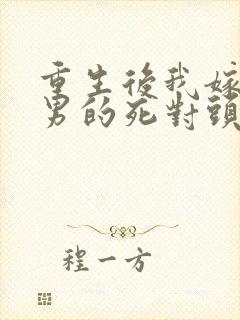 重生後我嫁
男的死對頭
程一方